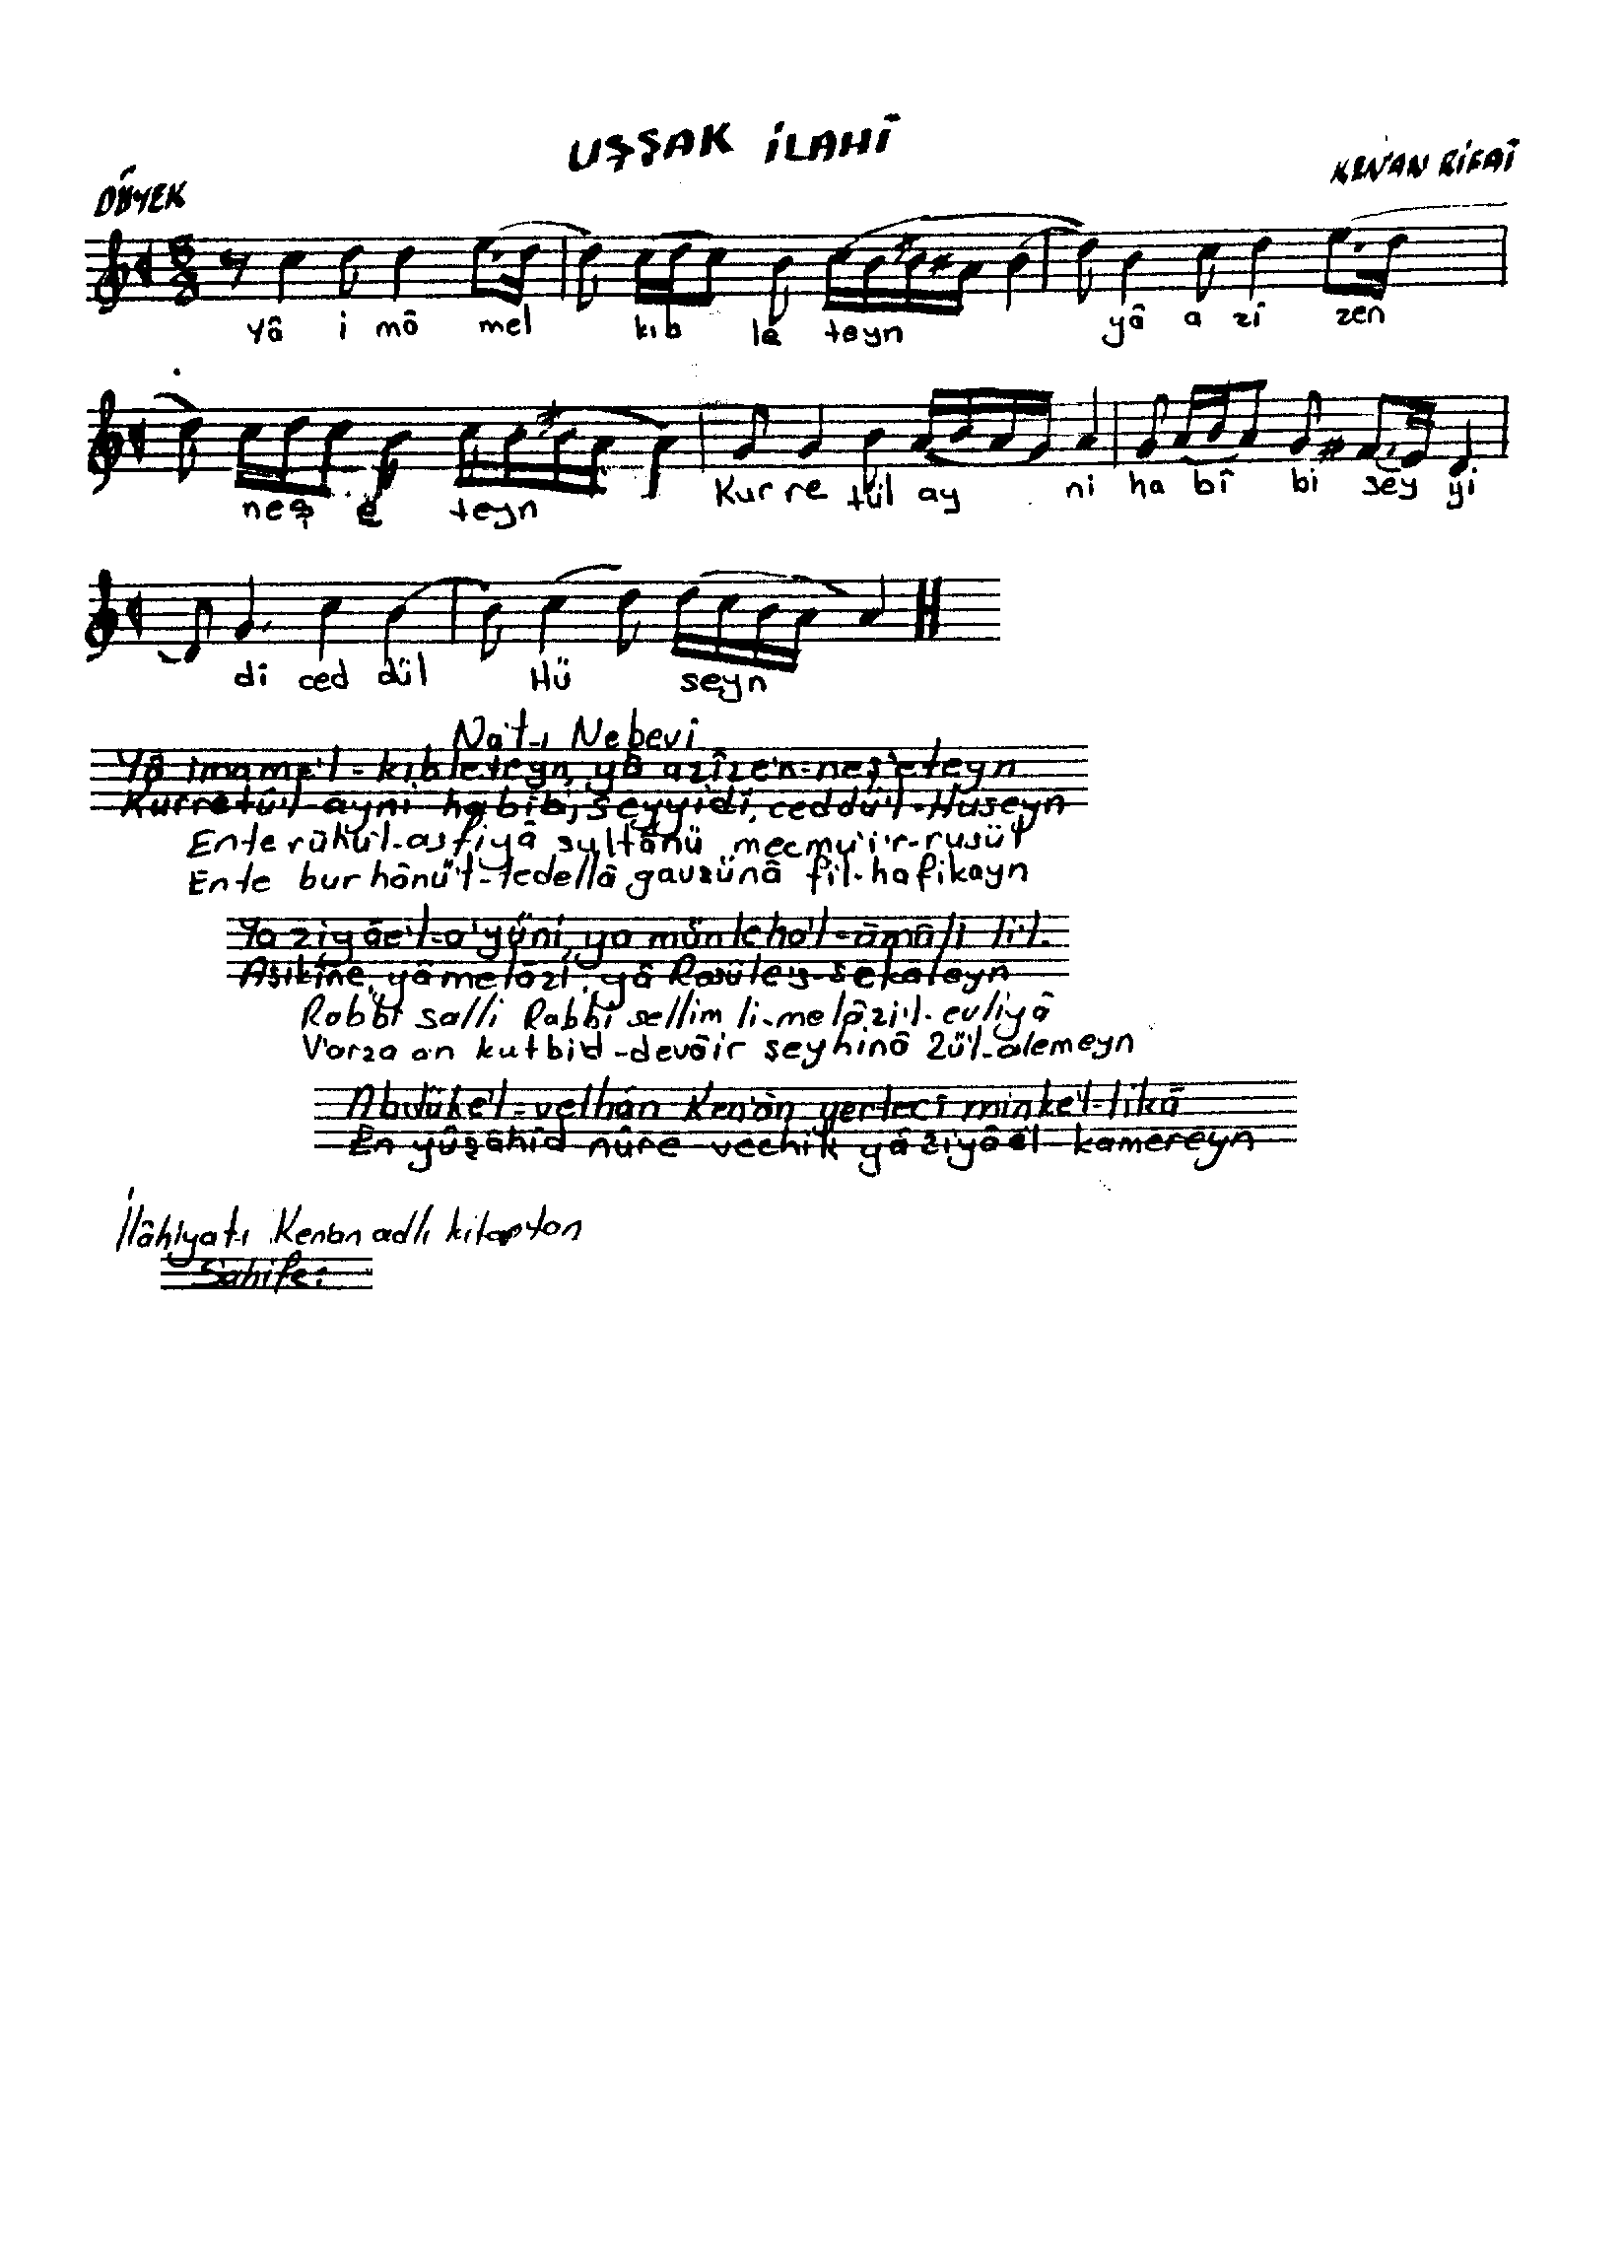 UŞŞAK İLAHÎ
DÜYEK
KEN'AN RİFAÎ
Yâ i mâ mel kıb le teyn yâ a zî zen
neş e teyn Kur re tül ay ni ha bî bi sey yi
di ced dül Hü seyn
Na't-ı Nebevi
Yâ imame'l-kıbleteyn, yâ azîze'n-neş'eteyn
Kurretü'l-ayni habîbi, seyyidi, ceddü'l-Hüseyn
Ente rûhu'l-asfiyâ sultânü mecmu'i'r-rusül
Ente burhânü't-tedellâ gavsünâ fil-hafikayn
Ya ziyâe'l-a'yüni, ya münteha'l-âmâli li'l-
Aşıkîne, yâ melâzi, yâ Rasûles-sekaleyn
Rabbi salli Rabbi sellim li-melâzi'l-evliyâ
V'arza an kutbid-devâir şeyhinâ Zü'l-alemeyn
Abdüke'l-velhân Ken'ân yertecî minke'l-likâ
En yûşâhid nûre vechik yâ ziyâel-kamereyn
İlâhiyat-ı Kenan adlı kitaptan
Sahife: